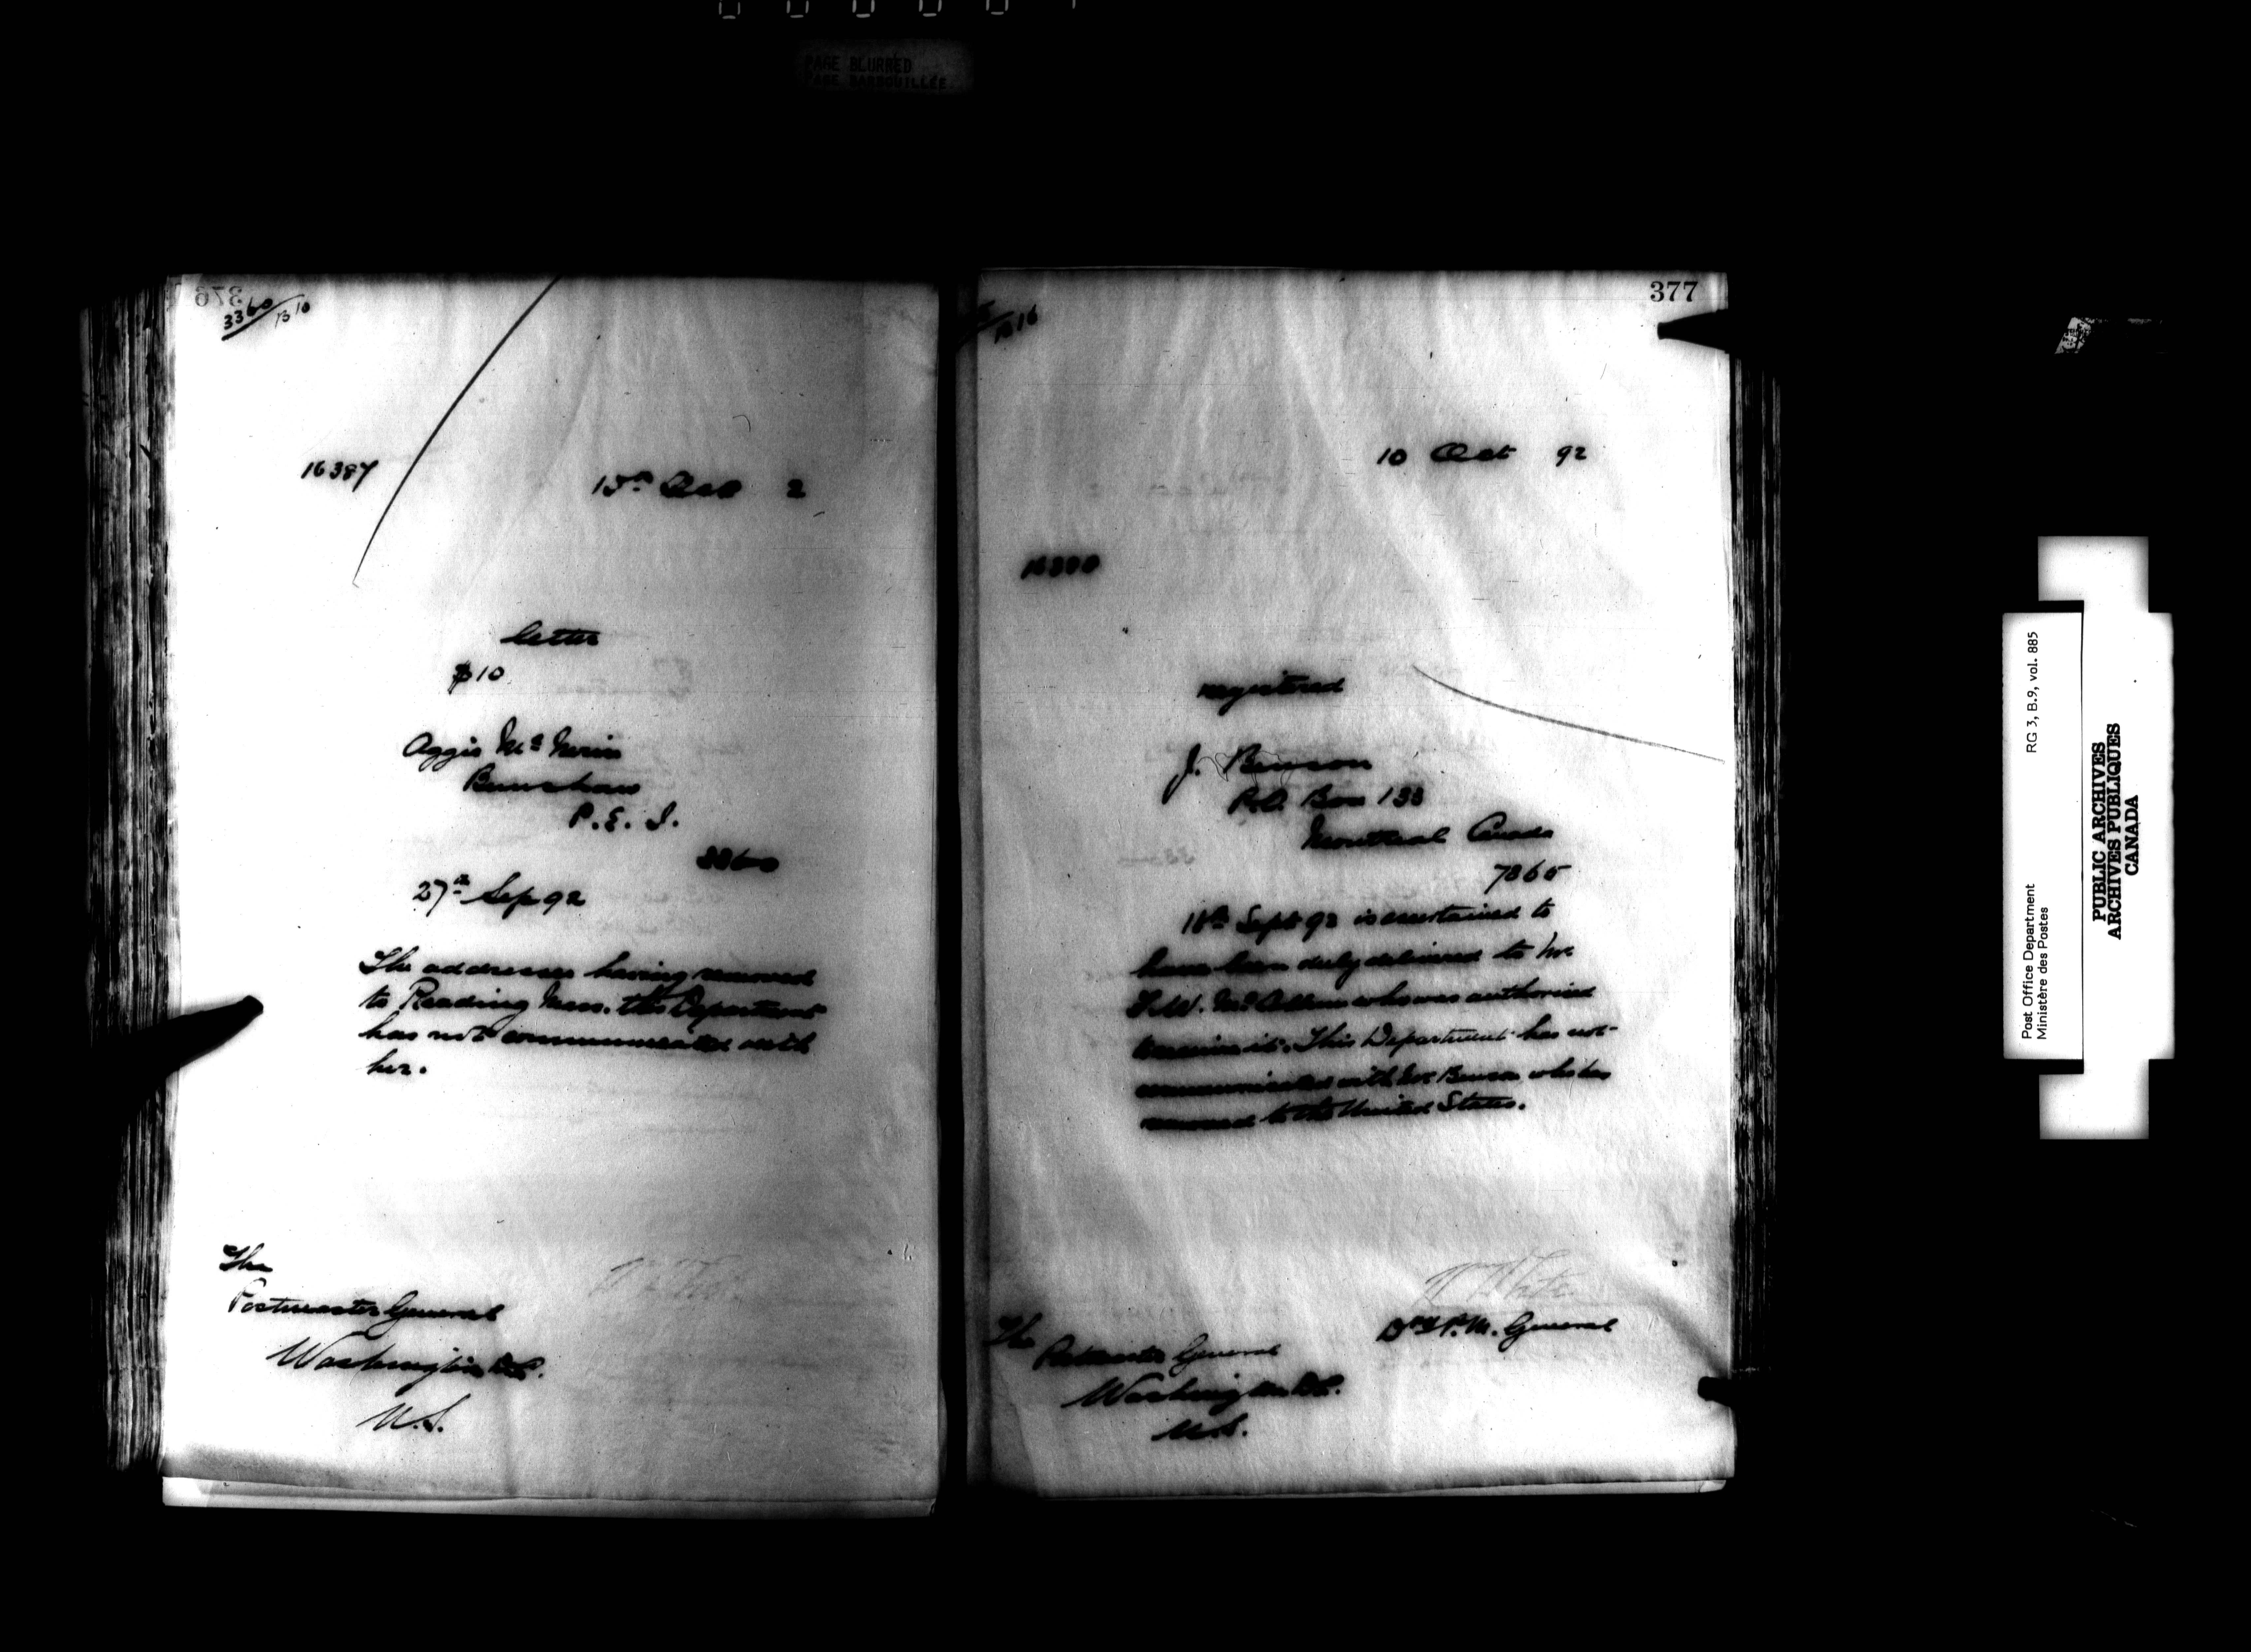 PAGE BLURRED
PAGE BARBOUILLÉE
376
3360/B10
16387
15th Oct 2
letter
$10
Aggie Mc
Bunshaw
P.E.I.
3360
27th Sep 92
The addressee having removed
to Reading Mass. the Department
has not communicated with
her.
The
Postmaster General
Washington D.C.
U.S.
377
10 Oct 92
registered
J. Benson
P.O. Box 133
Montreal Canada
7865
18th Sept 92 is ascertained to
have been duly delivered to Mr
who was authorised
to receive it. This Department has not
communicated with Mr Benson who has
removed to the United States.
Wm White
Dy P.M. General
The
Postmaster General
Washington D.C.
U.S.
Post Office Department RG 3, B.9, vol. 885
Ministère des Postes
PUBLIC ARCHIVES
ARCHIVES PUBLIQUES
CANADA